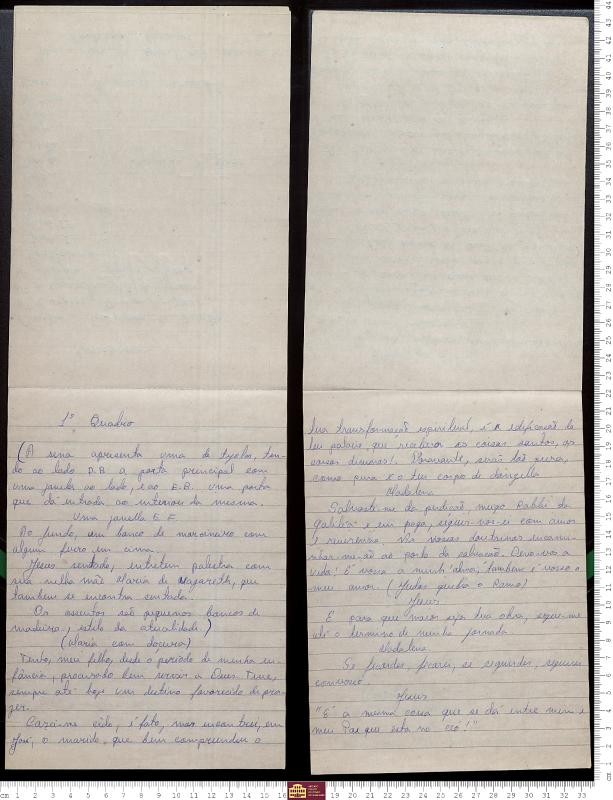 1º Quadro
(A sena apresenta uma de tyolos, ten-
do ao lado D.B. a porta principal com
uma janela ao lado, e ao E.B. uma porta
que dá entrada ao interior da mesma.
Uma janella E F.
Ao fundo, um banco de marceneiro com
algum ferro em cima.
Jesus sentado, entretem palestra com
sua mãe Maria de Nazareth, que
tambem se encontra sentada.
Os assentos são pequenos bancos de
madeira, estilo da atualidade.)
(Maria com doçura)
Tenho, meu filho, desde o periodo de minha in-
fância, procurado bem servir a Deus. Tive,
sempre até hoje um destino favorecido de pra-
zer.
Casei-me cêdo, é fato, mas encontrei, em
José, o marido que bem compreendeu o
tua transformação espiritual, é a edificação do
teu palacio, que receberá as coisas santas, as
coisas divinas! Doravante, serás tão pura,
como pura é o teu corpo de donzella
Madalena
Salvaste-me da perdição, meigo Rabbi da
Galiléa e em paga, seguir-vos-ei com amor
e reverencia. Vós vossas doutrinas encami-
nhar-me-ão ao porto da salvação. Devo-vos a
vida! É vossa a minh'alma, tambem é vosso o
meu amor. (Judas quebra o Ramo)
Jesus
E para que maior seja tua obra, segue-me
até o termino de minha jornada
Madalena
Se ficardes, ficarei, se seguirdes, seguirei
convosco.
Jesus
"É a mesma coisa que se dá entre mim e
meu Pai que esta no céo!"